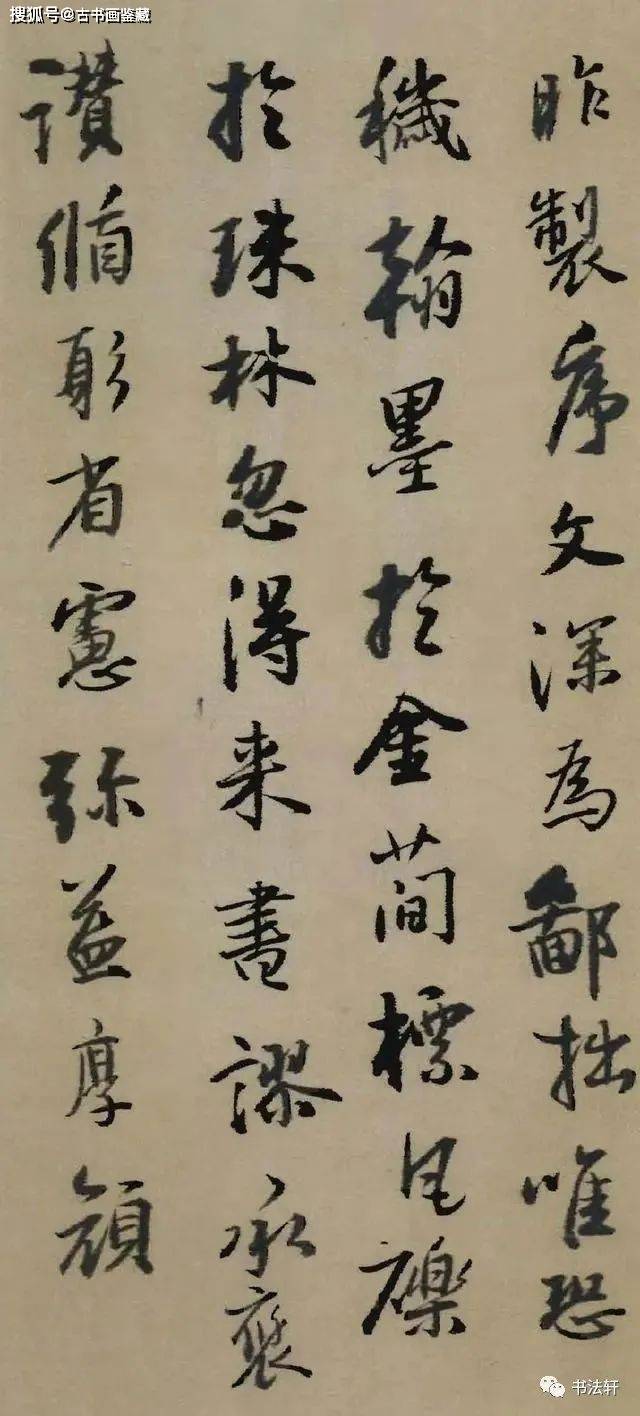 搜狐号@古书画鉴藏
昨製序文深為鄙拙唯恐
穢翰墨於金蕳標瓦礫
於珠林忽得来書謬承褒
讚循躬省慮弥益厚顔
书法轩